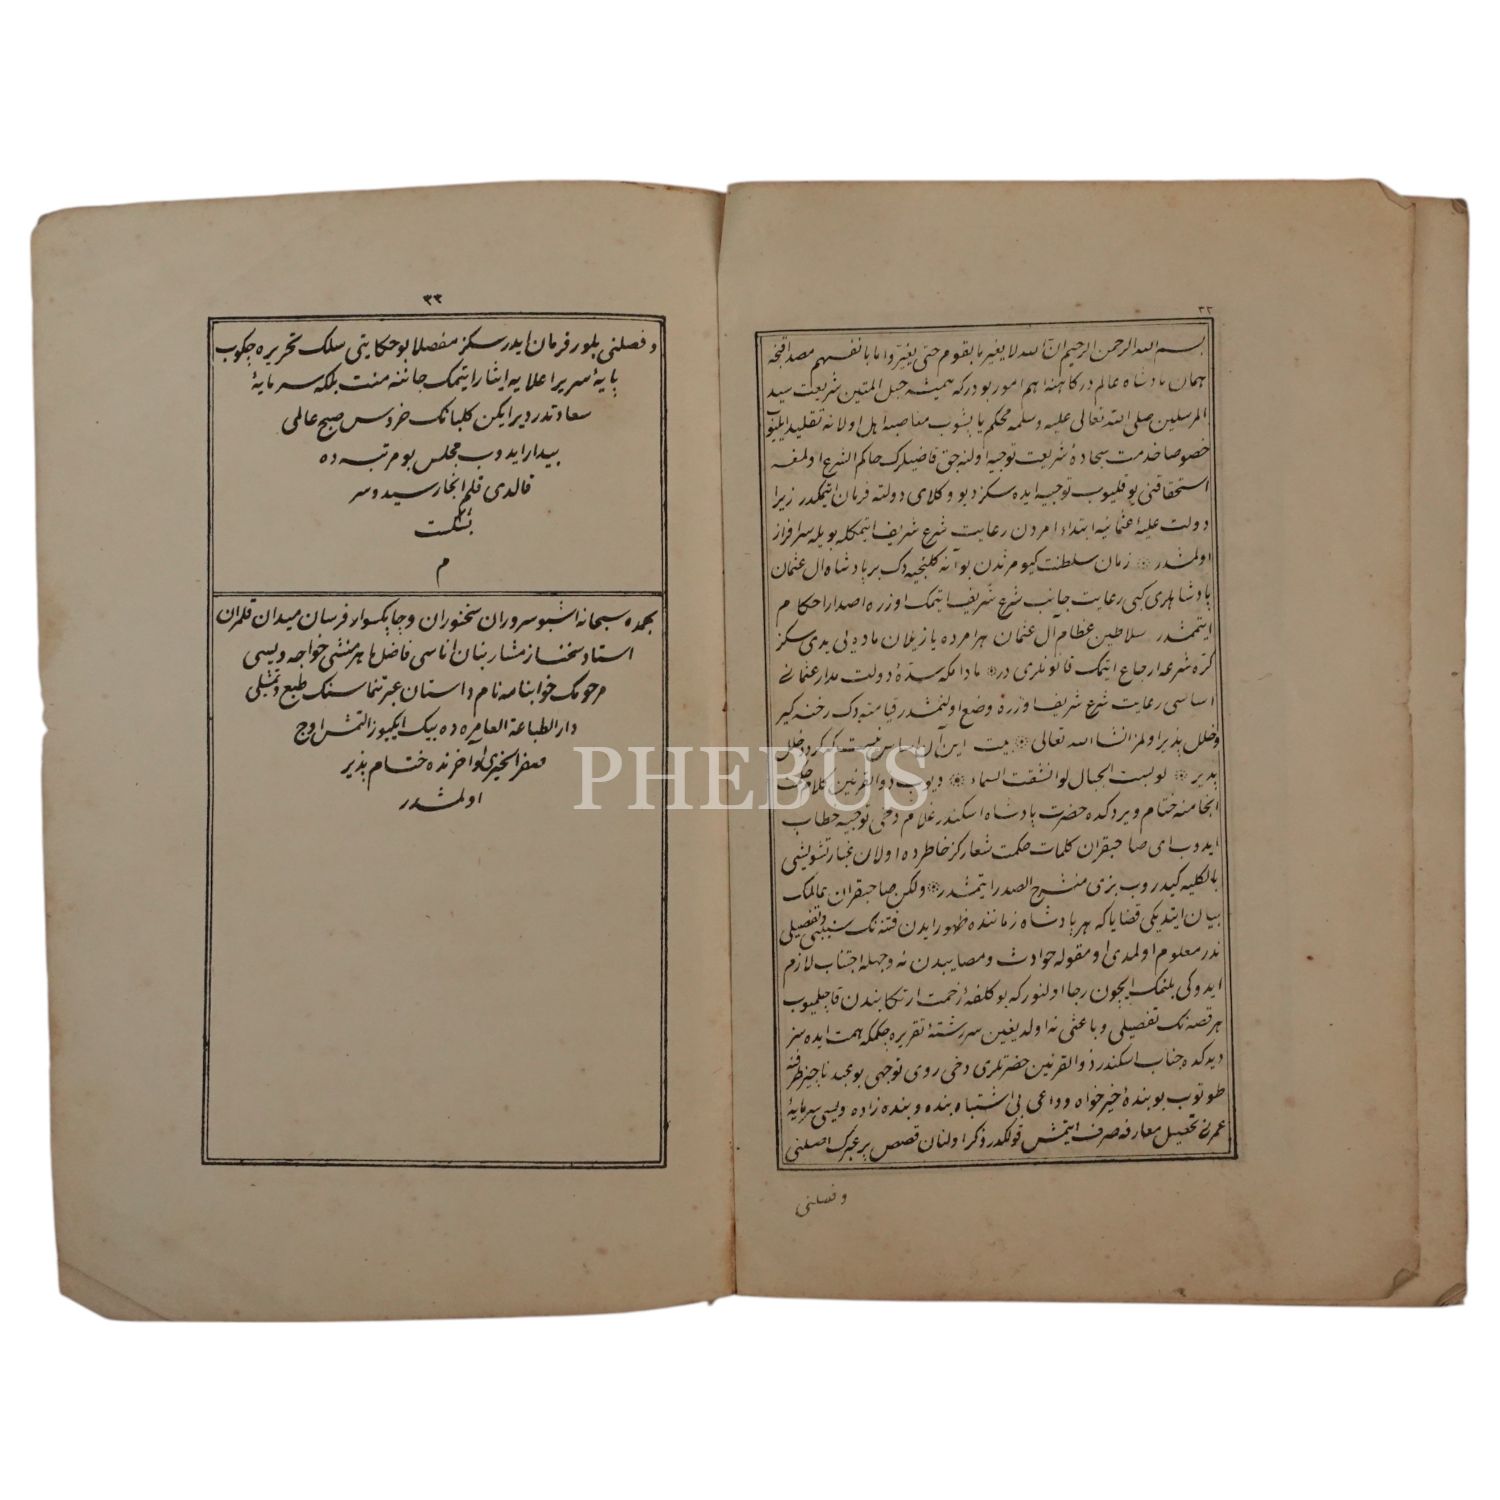 ٣٢
بسم الله الرحمن الرحیم ان الله لا یغیر ما بقوم حتی یغیروا ما بانفسهم مصداقنجه
همان پادشاه عالم درکاهنه اهم امور بودرکه همیشه حبل المتین شریعت سید
المرسلین صلی الله تعالی علیه وسلمه محکم یاپشوب مناصبه اهل اولانه تقلید ایلیوب
خصوصا خدمت سجادهٔ شریعت توجیه اولنه جق قاضیلرک حاکم الشرع اولمغه
استحقاقنی یوقلیوب توجیه ایده سکز دیو وکلای دولته فرمان ایتمکدر زیرا
دولت علیهٔ عثمانیه ابتداء امردن رعایت شرع شریف ایتمکله بویله سرافراز
اولمشدر زمان سلطنت کیومرثدن بو آنه کلنجیه دک بر پادشاه ال عثمان
پادشاهلری کبی رعایت جانب شرع شریف ایتمک اوزره اصدار احکام
ایتمشدر سلاطین عظام آل عثمان هر امرده یازیلان ماده یی یدی سکز
کره شرعه ارجاع ایتمک قانونلری در مادامکه سدهٔ دولت مدار عثمانی
اساسی رعایت شرع شریف اوزره وضع اولنمشدر قیامته دک رخنه کیر
وخلل پذیر اولمز انشا الله تعالی بیت این آن اساس نیست که کردد خلل
پذیر لو بست الجبال لو انشقت السماء دیوب ذوالقرنین کلام حکمت
انجامنه ختام ویردکده حضرت پادشاه اسکندر غلام دخی توجیه خطاب
ایدوب ای صاحبقران کلمات حکمت شعارکز خاطرده اولان غبار تشویشی
بالکلیه کیدروب بزی منشرح الصدر ایتمشدر ولکن صاحبقران عالمک
بیان ایتدیکی قضایا که هر پادشاه زماننده ظهور ایدن فتنه نک سببی وتفصیلی
ندر معلوم اولمدی اومقوله حوادث ومصایبدن نه وجهله اجتناب لازم
ایدوکی بلنمک ایچون رجا اولنورکه بو کلفهٔ زحمت ارتکابندن قاچلمیوب
هر قصه نک تفصیلی وباعثی نه اولدیغین سررشتهٔ تقریره چکمکه همت ایده سز
دیدکده جناب اسکندر ذوالقرنین حضرتلری دخی روی توجهی بو عبد ناچیز طرفنه
طوتوب بو بندهٔ خیرخواه وداعی بی اشتباه بنده وبنده زاده ویسی سرمایهٔ
عمرنی تحصیل معارفه صرف ایتمش قولکدر ذکر اولنان قصص پر عبرک اصلنی
وفصلنی
٣٣
وفصلنی بلور فرمان ایدرسکز مفصلا بو حکایتی سلک تحریره چکوب
پایهٔ سریر اعلایه ایثار ایتمک جاننه منت بلکه سرمایهٔ
سعادتدر دیر ایکن کلبانک خروس صبح عالمی
بیدار ایدوب مجلس بو مرتبه ده
قالدی قلم انجا رسید وسر
بشکست
م
بحمده سبحانه اشبو سروران سخنوران وچابکسوار فرسان میدان قلمران
استاد سخنساز مشار بنان اناسی فاضل ماهر منشی خواجه ویسی
مرحومک خوابنامه نام داستان عبرتنماسنک طبع وتمثیلی
دار الطباعة العامره ده بیک ایکیوز التمش اوچ
صفر الخیری اواخرنده ختام پذیر
اولمشدر
PHEBUS